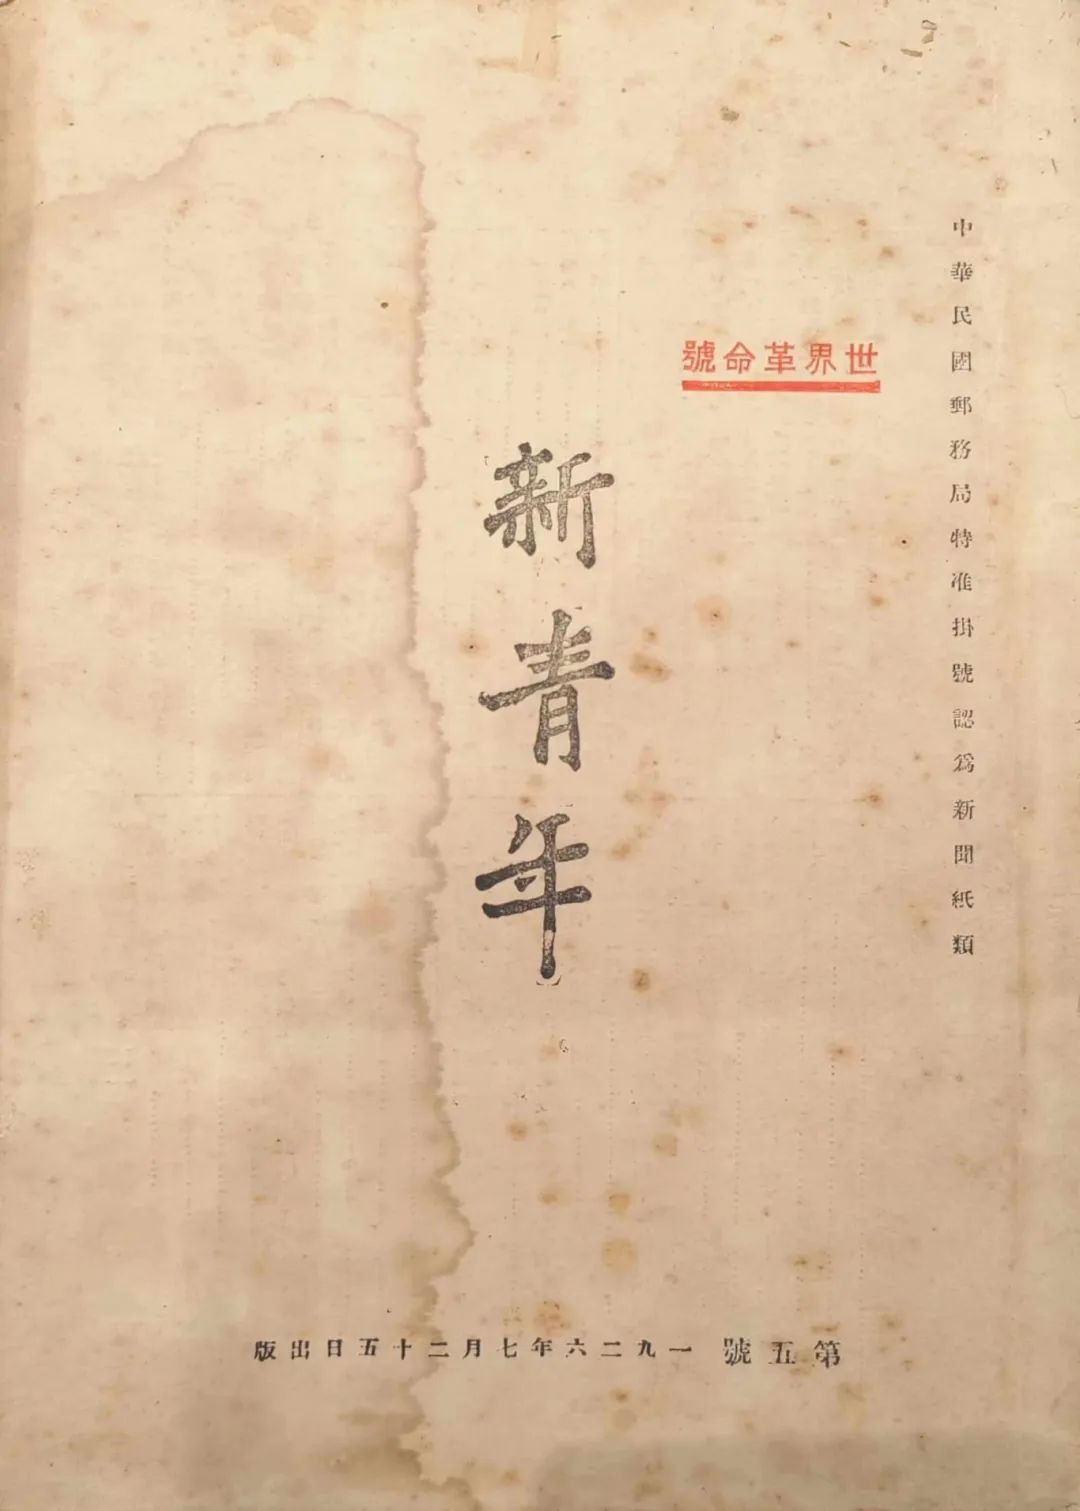 中華民國郵務局特准掛號認爲新聞紙類
世界革命號
新青年
第五號 一九二六年七月二十五日出版